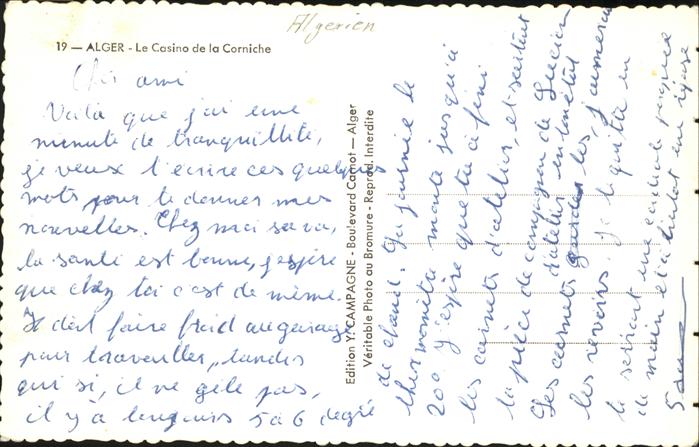 Algerien
19 — ALGER - Le Casino de la Corniche
Cher ami
Voilà que j'ai une
minute de tranquillité,
je veux t'écrire ces quelques
mots pour te donner mes
nouvelles. Chez moi sa va,
la santé est bonne, j'espère
que chez toi c'est de même.
Il doit faire froid au garage
pour travailler, tandis
qui si, il ne gèle pas,
il y a toujours 5 à 6 degré
Edition Y. CAMPAGNE - Boulevard Carnot — Alger
Véritable Photo au Bromure - Reprod. Interdite
de chaud. La journée le
thermomètre monte jusqu'à
20° J'espère que tu a fini
les carnets d'atelier, et surtout
la pièce de campagne de Lucien
Les carnets d'atelier en
garder les, j'aimerai
les revoirs. Je te quitte en
te serrant une cordiale poignée
de main et à bientôt